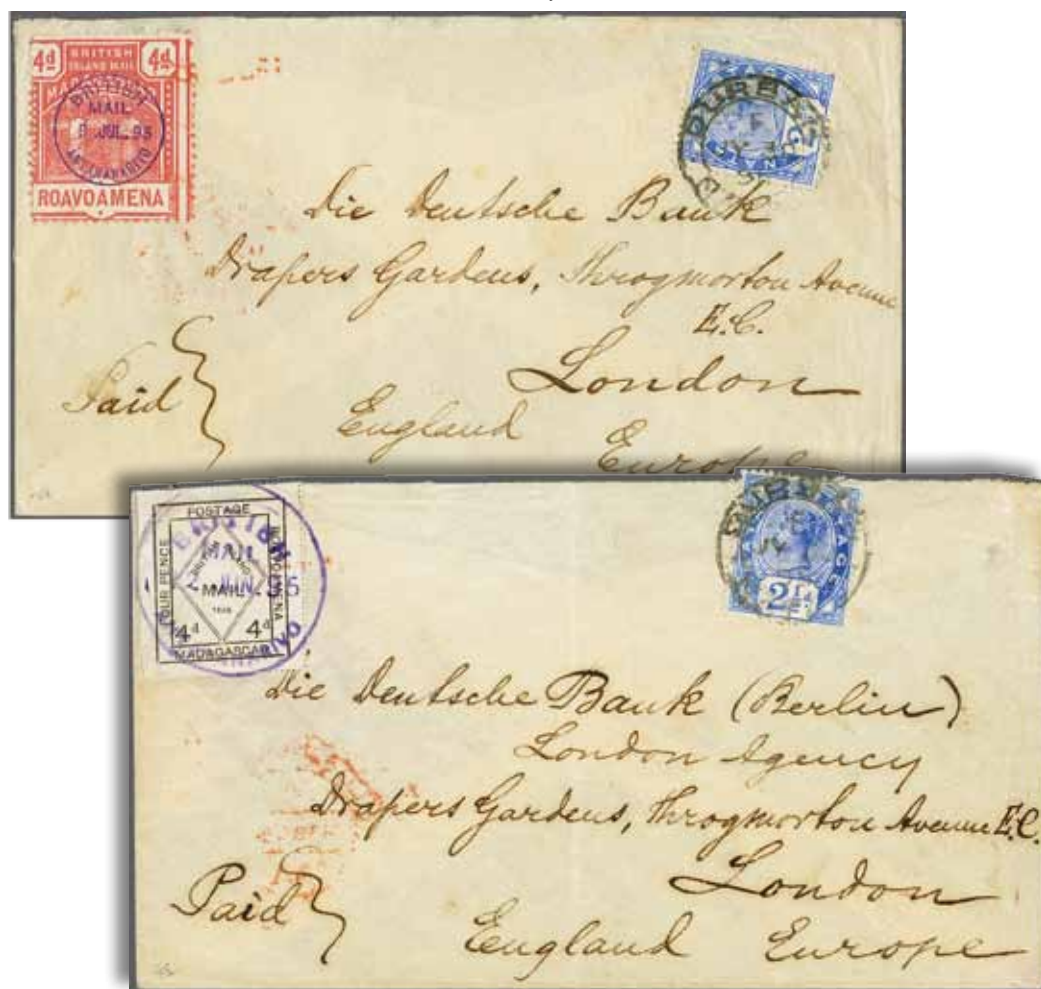 4d BRITISH 4d
INLAND MAIL
BRITISH
MAIL
JUL. 95
ANTANANARIVO
ROAVOAMENA
DURBAN
NATAL
Die Deutsche Bank
Drapers Gardens, Throgmorton Avenue
E.C.
London
Paid
England
Europe
POSTAGE
FOUR PENCE
BRITISH INLAND
MAIL
1895
4d 4d
MADAGASCAR
BRITISH
MAIL
JUN. 95
DURBAN
2½d
Die Deutsche Bank (Berlin)
London Agency
Drapers Gardens, Throgmorton Avenue E.C.
London
Paid
England Europe